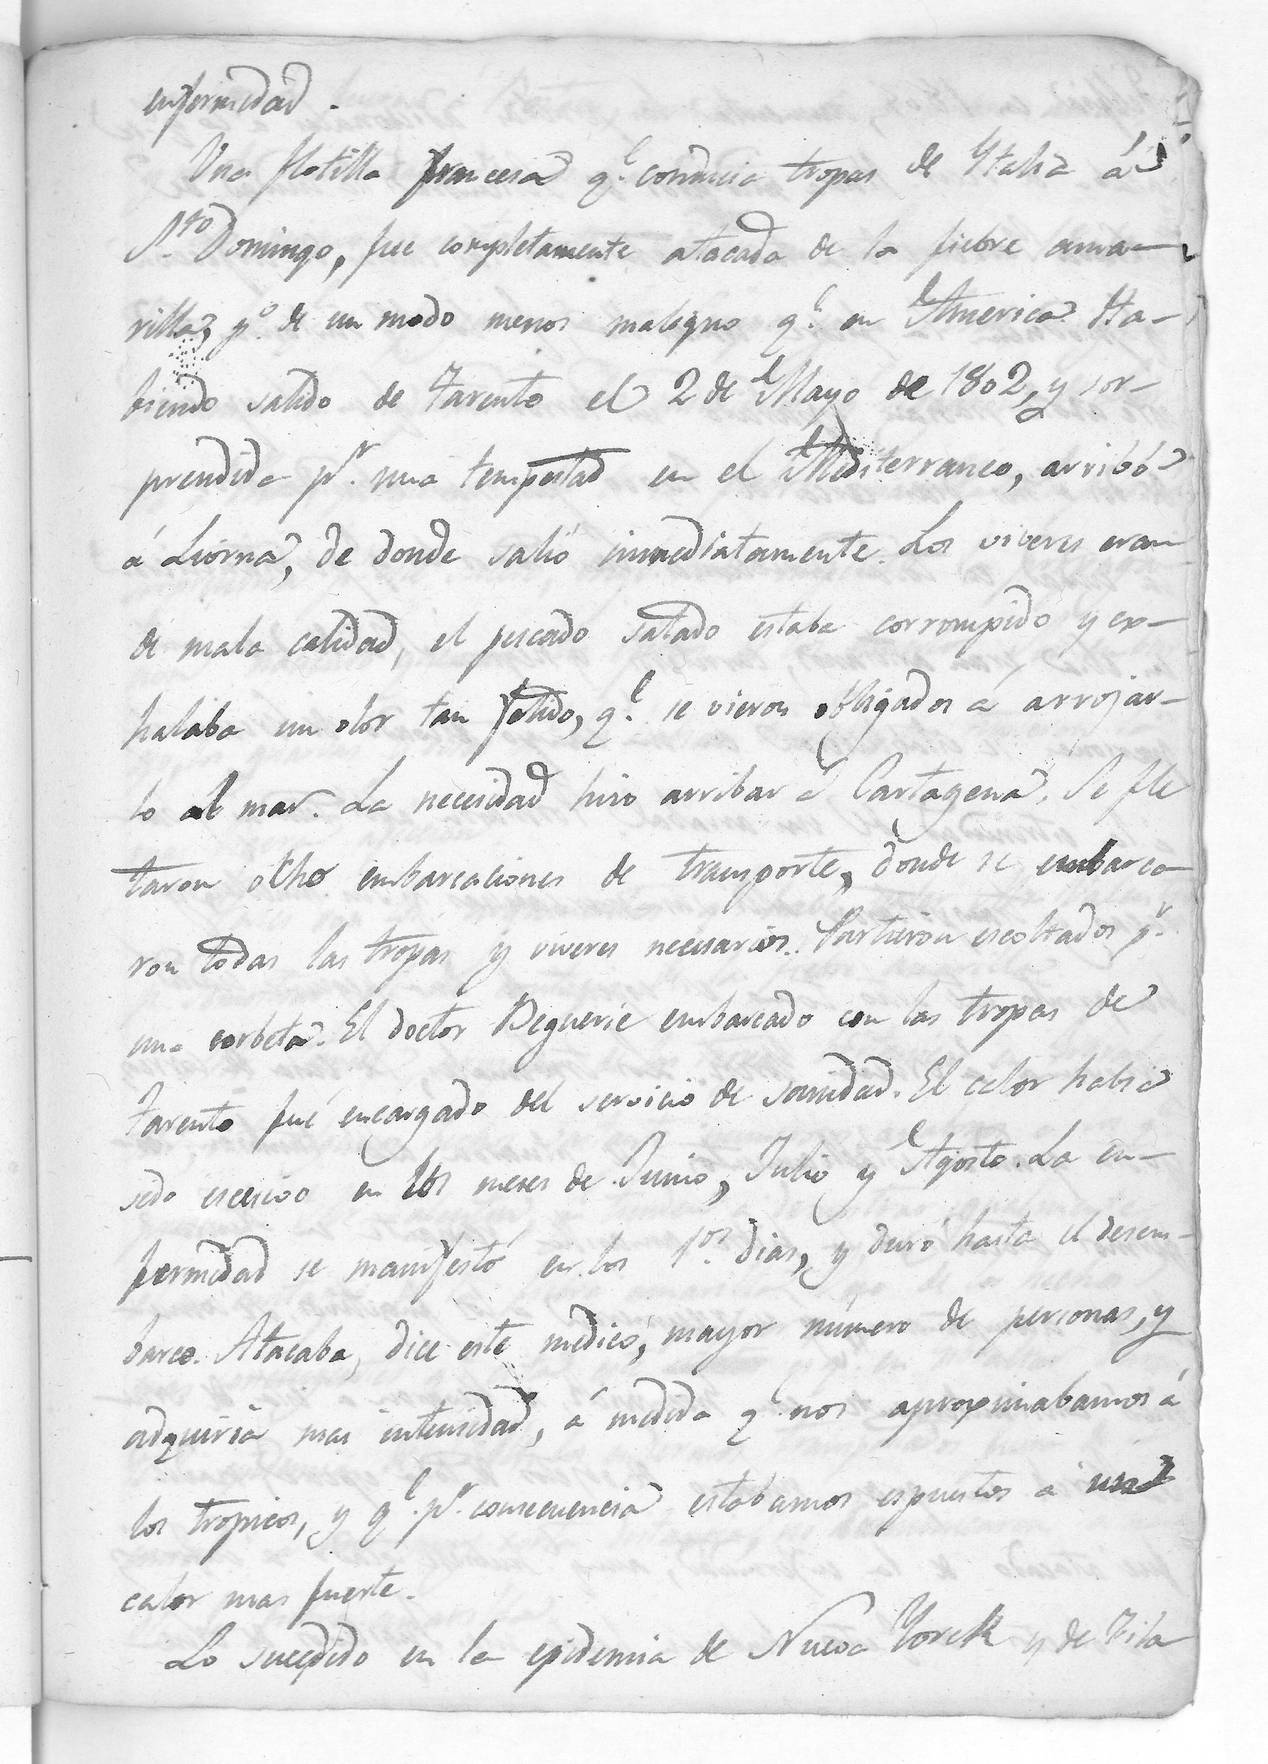 enfermedad.
Una flotilla francesa q.e conducia tropas de Ytalia á
S.to Domingo, fue completamente atacada de la fiebre ama-
rilla, p.o de un modo menos maligno q.e en America. Ha-
biendo salido de Tarento el 2 de Mayo de 1802, y sor-
prendida p.r una tempestad en el Mediterraneo, arribó
á Liorna, de donde salió inmediatamente. Los viveres eran
de mala calidad, el pescado salado estaba corrompido y ex-
halaba un olor tan fetido, q.e se vieron obligados á arrojar-
lo al mar. La necesidad hizo arribar á Cartagena. Se fle
taron ocho embarcaciones de transporte, donde se embarca-
ron todas las tropas y viveres necesarios. Partieron escoltados p.r
una corbeta. El doctor Beguerie embarcado con las tropas de
Tarento fué encargado del servicio de sanidad. El calor habia
sido escesivo en los meses de Junio, Julio y Agosto. La en-
fermedad se manifestó en los 1.os dias, y duró hasta el desem-
barco. Atacaba, dice este medico, mayor número de personas, y
adquiria mas intensidad, á medida q.e nos aproximabamos á
los tropicos, y q.e p.r consecuencia estabamos espuestos á un
calor mas fuerte.
Lo sucedido en la epidemia de Nueva Yorck y de Fila